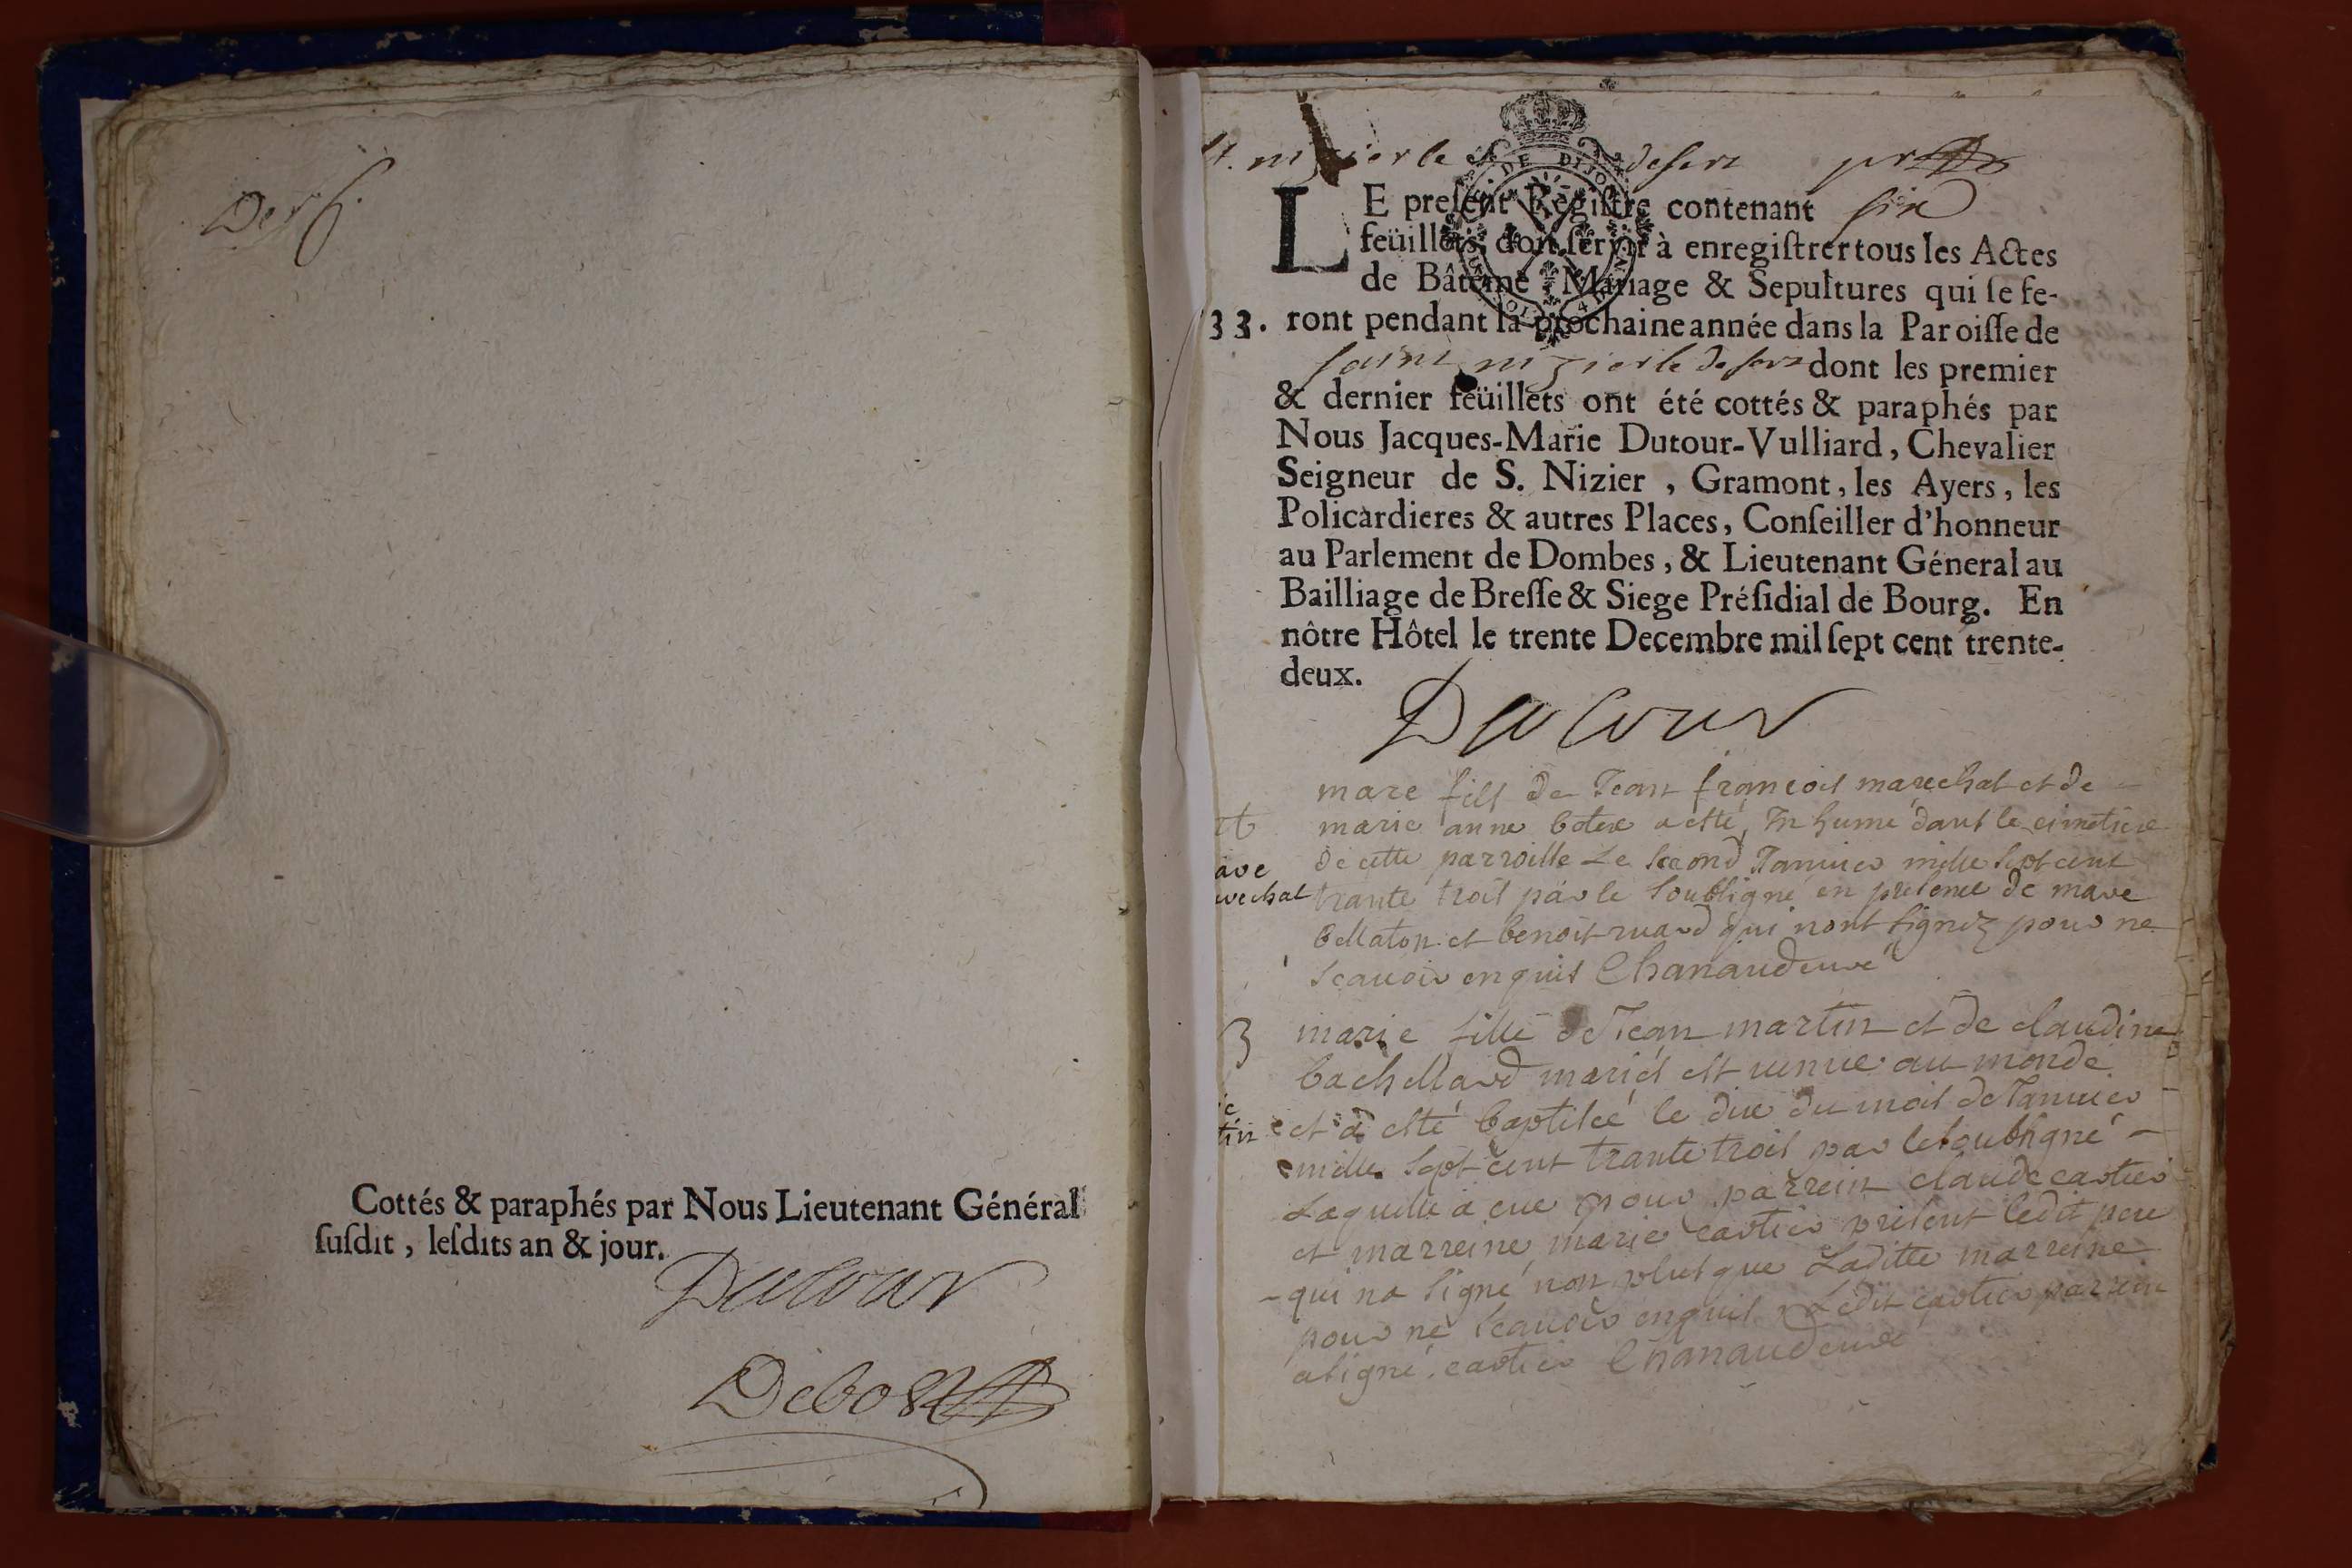 Der 6.
Cottés & paraphés par Nous Lieutenant Général
ſuſdit, leſdits an & jour.
Dutour
Debost
St. nizier le desert pr
LE preſent Regiſtre contenant six
feüillets, doit ſervir à enregiſtrer tous les Actes
de Bâteme Mariage & Sepultures qui ſe fe-
33. ront pendant la prochaine année dans la Paroiſſe de
saint nizier le desert dont les premier
& dernier feüillets ont été cottés & paraphés par
Nous Jacques-Marie Dutour-Vulliard, Chevalier
Seigneur de S. Nizier, Gramont, les Ayers, les
Policardieres & autres Places, Conſeiller d'honneur
au Parlement de Dombes, & Lieutenant Géneral au
Bailliage de Breſſe & Siege Préſidial de Bourg. En
nôtre Hôtel le trente Decembre mil ſept cent trente-
deux.
Dutour
marc fils de Jean françois marechal et de
marie anne a esté Inhumé dans le cimetiere
de cette parroisse Le second Janvier mille sept cent
trante trois par le soubsigné en presence de marc
bellaton et benoit ruard qui nont signéz pour ne
scauoir enquis Chanaudeuré
marie fille de Jean martin et de claudine
bachellard mariés est venue au monde
et a esté baptisée le dix du mois de Janvier
mille sept cent trante trois par le soubsigné
Laquelle a eue pour parrein claude cartier
et marreine marie cartier présent ledit pere
qui na signé non plus que Laditte marreine
pour ne scauoir enquis Ledit cartier parrein
a signé. cartier Chanaudeuré